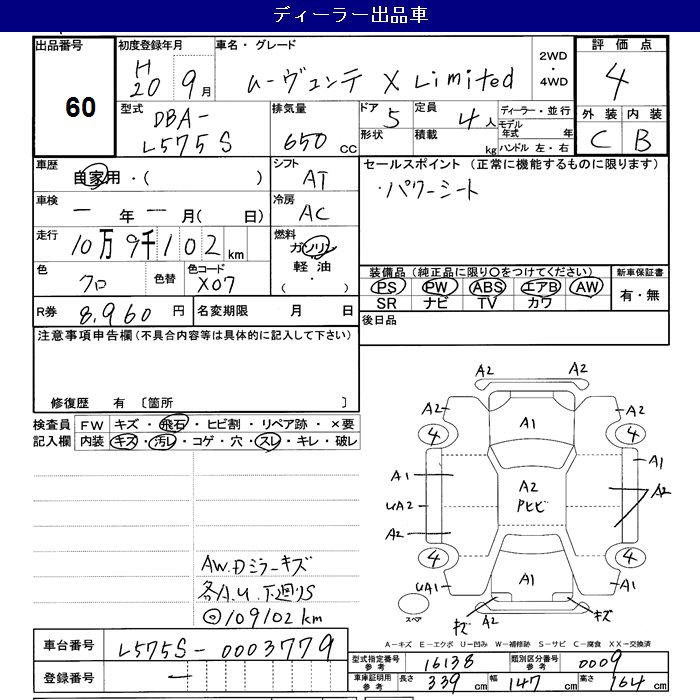 ディーラー出品車
出品番号 初度登録年月 車名・グレード 2WD・4WD 評価点
60 H20 9月 ムーヴコンテ X Limited 4
型式 排気量 ドア 定員 ディーラー・並行 外装 内装
DBA-L575S 650cc 5 4人 モデル年式 年 C B
形状 積載 kg ハンドル 左・右
車歴 自家用・( ) シフト AT セールスポイント (正常に機能するものに限ります)
車検 ー年ー月(日) 冷房 AC ・パワーシート
走行 10万9千102km 燃料 ガソリン・軽油・( )
色 クロ 色替 色コード X07 装備品(純正品に限り○をつけてください) 新車保証書
PS PW ABS エアB AW 有・無
SR ナビ TV カワ
R券 8,960円 名変期限 月 日 後日品
注意事項申告欄(不具合内容等は具体的に記入して下さい)
修復歴 有 〔箇所 〕
検査員 FW キズ・飛石・ヒビ割・リペア跡・×要
記入欄 内装 キズ・汚レ・コゲ・穴・スレ・キレ・破レ
A2 A2
A2 A1 A2
4 4
A1 A1
UA2 A2 Pヒビ A2
A2
4 4
UA1 A1 UA1
キズ A2 キズ
スペア
AW.Dミラーキズ
各A.U.下廻りS
◎109102km
A－キズ E－エクボ U－凹み W－補修跡 S－サビ C－腐食 XX－交換済
車台番号 L575S-0003779
登録番号 ー
型式指定番号 参考 16138 類別区分番号 参考 0009
車庫証明用 参考 長さ 339cm 幅 147cm 高さ 164cm